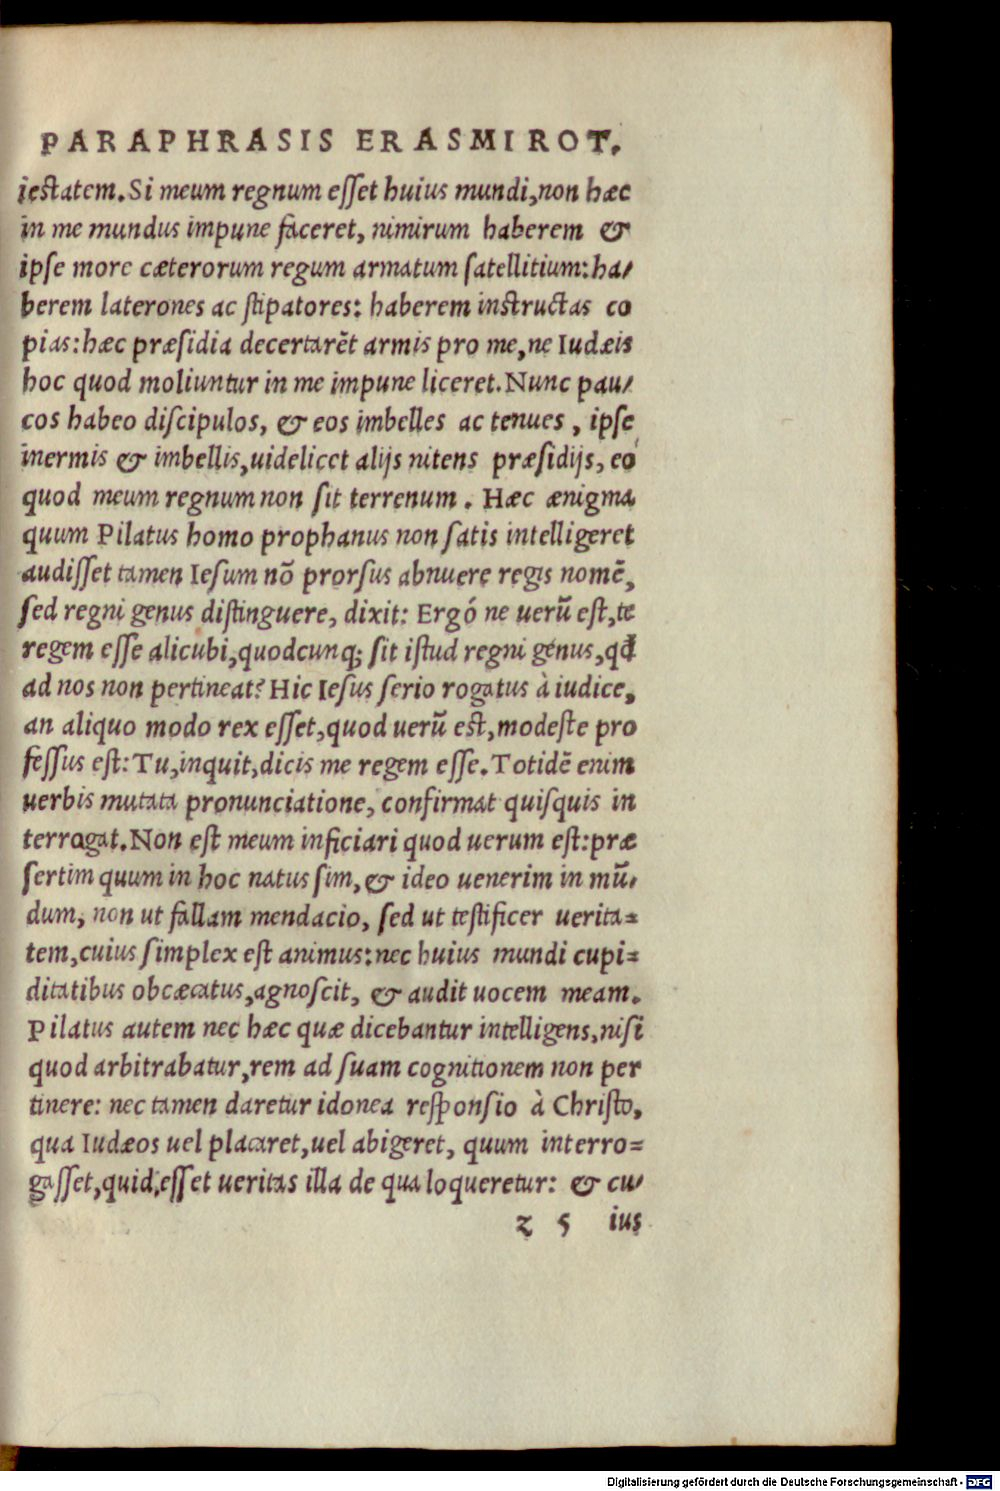 PARAPHRASIS ERASMI ROT.
iestatem. Si meum regnum esset huius mundi, non hæc
in me mundus impune faceret, nimirum haberem &
ipse more cæterorum regum armatum satellitium: ha/
berem laterones ac stipatores: haberem instructas co
pias: hæc præsidia decertarēt armis pro me, ne Iudæis
hoc quod moliuntur in me impune liceret. Nunc pau/
cos habeo discipulos, & eos imbelles ac tenues, ipse
inermis & imbellis, uidelicet alijs nitens præsidijs, eo
quod meum regnum non sit terrenum. Hæc ænigma
quum Pilatus homo prophanus non satis intelligeret
audisset tamen Iesum nō prorsus abnuere regis nomē,
sed regni genus distinguere, dixit: Ergó ne uerū est, te
regem esse alicubi, quodcunq; sit istud regni genus, qđ
ad nos non pertineat? Hic Iesus serio rogatus à iudice,
an aliquo modo rex esset, quod uerū est, modeste pro
fessus est: Tu, inquit, dicis me regem esse. Totidē enim
uerbis mutata pronunciatione, confirmat quisquis in
terrogat. Non est meum inficiari quod uerum est: præ
sertim quum in hoc natus sim, & ideo uenerim in mū/
dum, non ut fallam mendacio, sed ut testificer uerita=
tem, cuius simplex est animus: nec huius mundi cupi=
ditatibus obcæcatus, agnoscit, & audit uocem meam.
Pilatus autem nec hæc quæ dicebantur intelligens, nisi
quod arbitrabatur, rem ad suam cognitionem non per
tinere: nec tamen daretur idonea responsio à Christo,
qua Iudæos uel placaret, uel abigeret, quum interro=
gasset, quid, esset ueritas illa de qua loqueretur: & cu/
z 5 ius
Digitalisierung gefördert durch die Deutsche Forschungsgemeinschaft - DFG